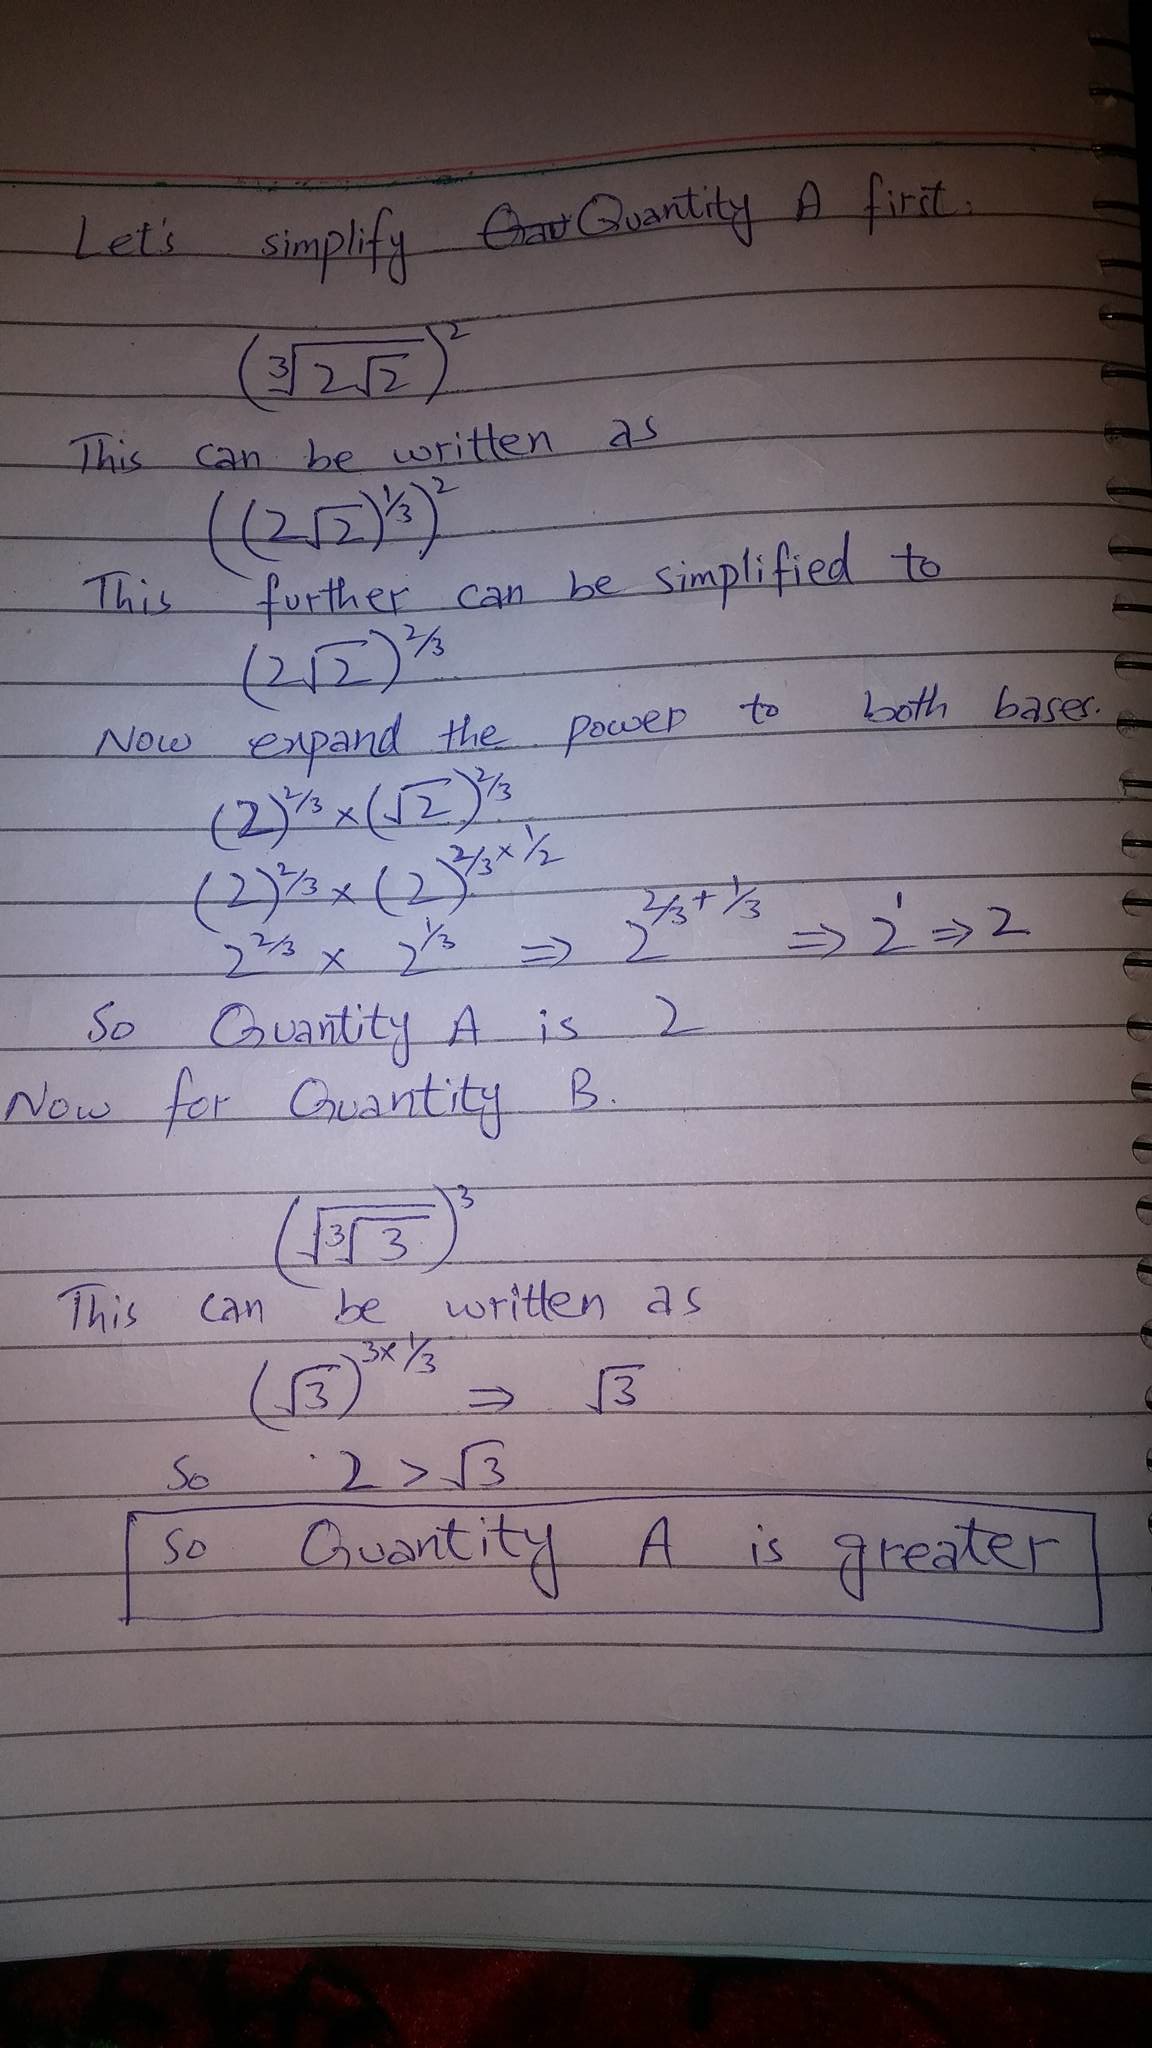 Let's simplify Quantity A first.
(∛(2√2))²
This can be written as
((2√2)^1/3)²
This further can be simplified to
(2√2)^2/3
Now expand the power to both bases.
(2)^2/3 × (√2)^2/3
(2)^2/3 × (2)^2/3×1/2
2^2/3 × 2^1/3 ⇒ 2^2/3+1/3 ⇒ 2^1 ⇒ 2
So Quantity A is 2
Now for Quantity B.
(√(∛3))³
This can be written as
(√3)^3×1/3 ⇒ √3
So 2 > √3
So Quantity A is greater